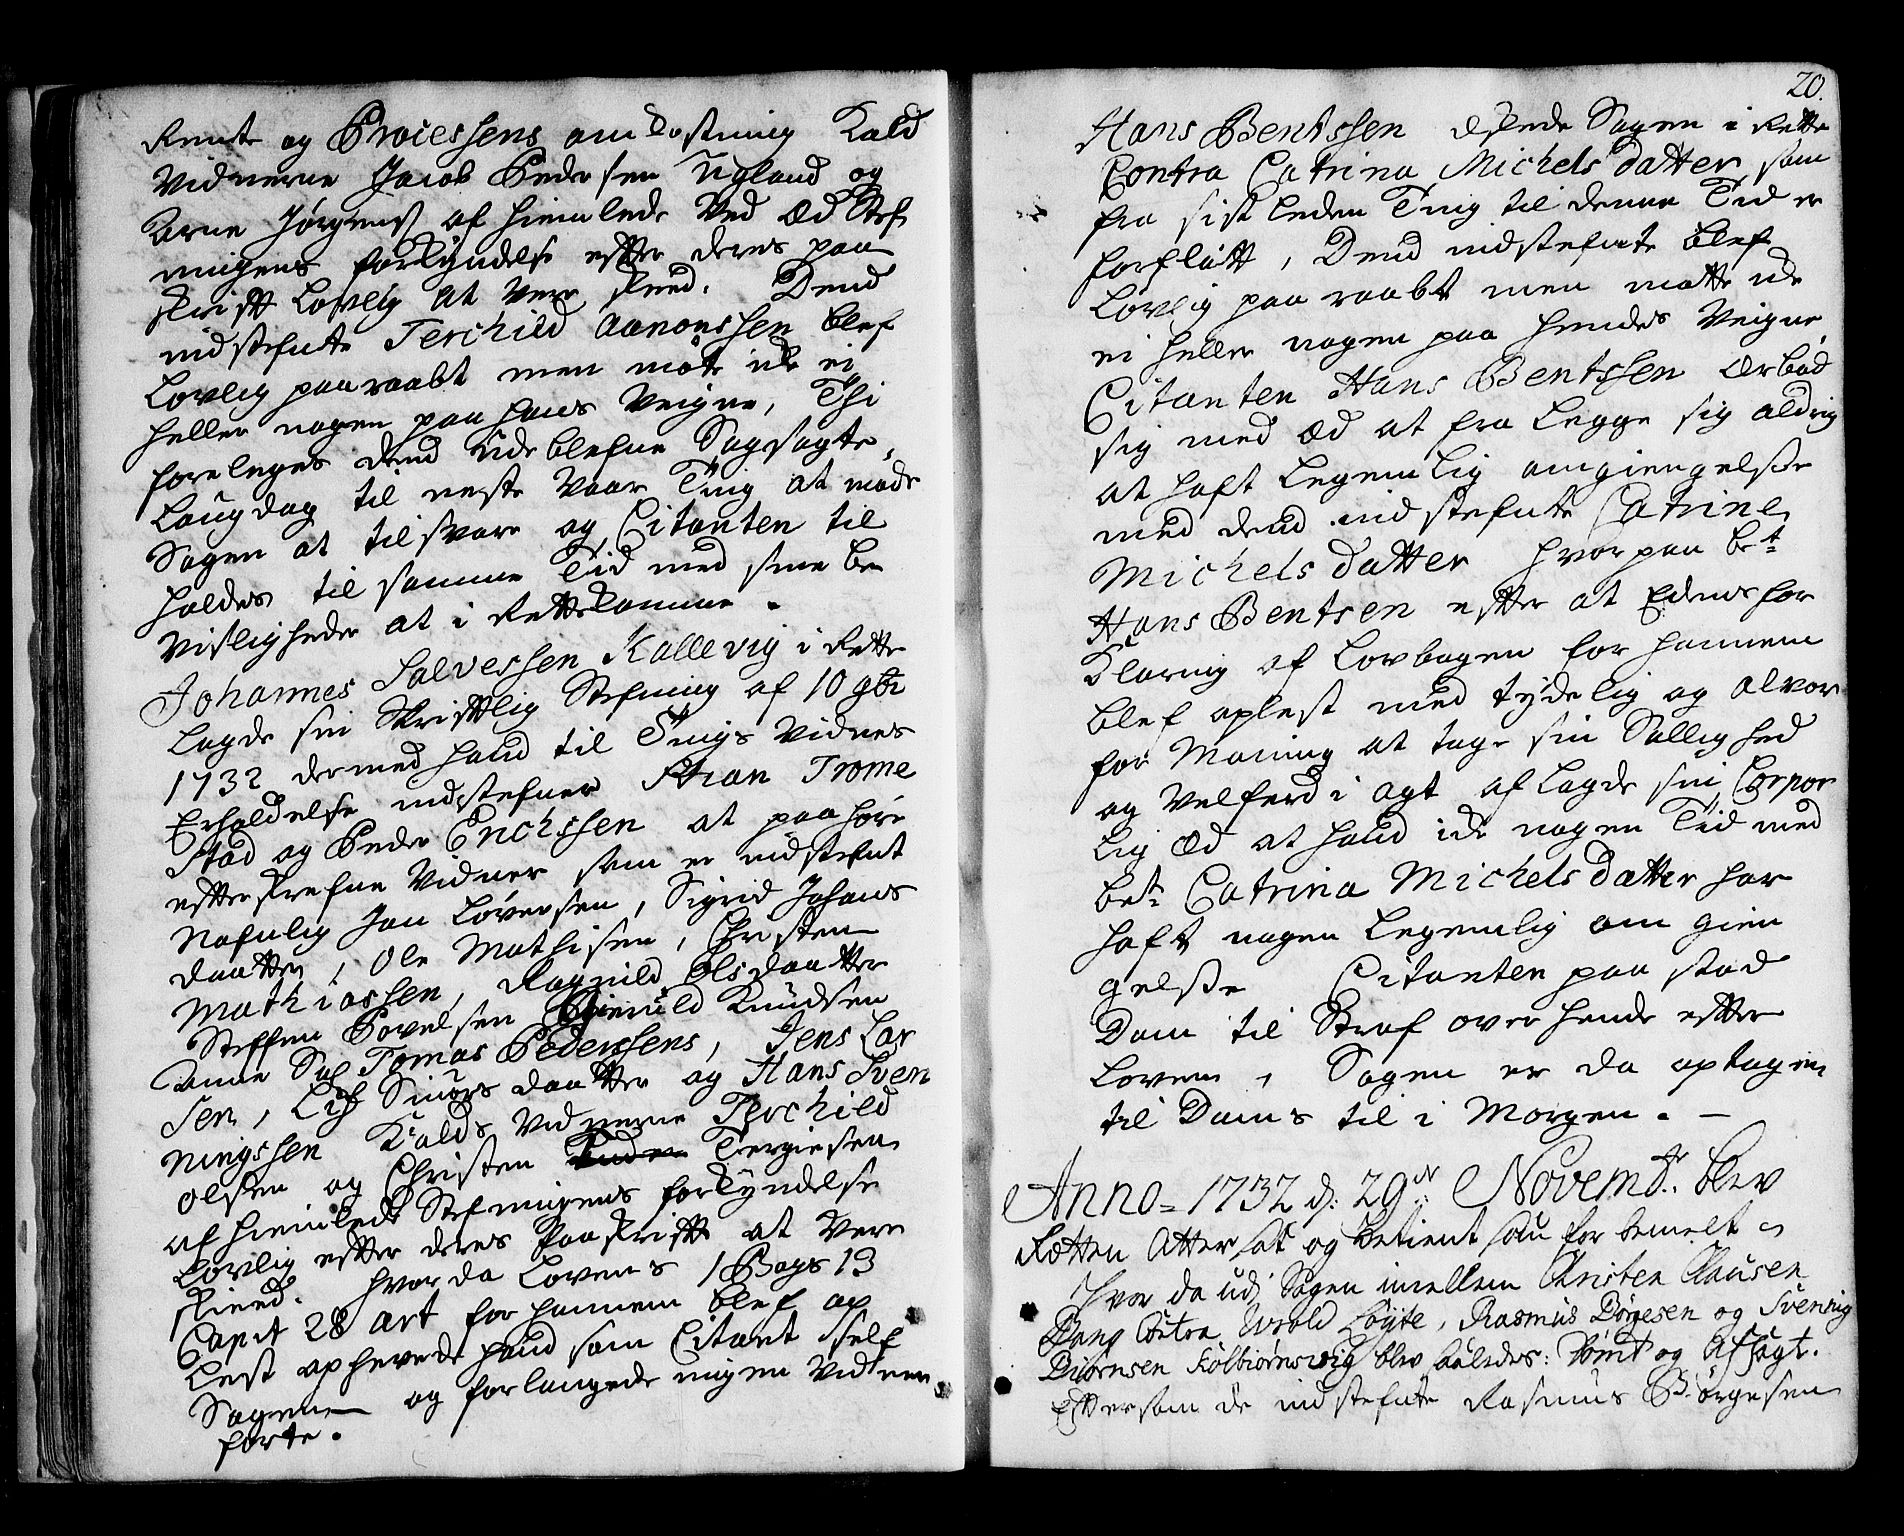 Rente og Processens omkostning Kald
Vidnerne Jacob Pedersen Ugland og
Arne Jørgens af hiemlede Ved Æd Stef
ningens forkyndelse efter deres paa
skrift Lovlig at Vere skeed. Dend
indstefnte Terchild Aanonssen blef
Lovlig paaraabt men møte icke ei
heller nogen paa hans Veigne, Thi
foreleges dend udeblefne Sagsøgte
Laugdag til neste Vaar Ting at møde
Sagen at tilsvare og Citanten til
holdes til samme Tid med sine be
Visligheder at i Rettekomme.
Johannes Salvessen Kallevig i Rette
Lagde sin Skriftlig Stefning af 10 9br
1732 dermed hand til Tings Vidnes
Erholdelse indstefner Stian Trome
stad og Peder Erichssen at paahøre
efterskrefne Vidner som er indstefnt
Nafnlig Jon Løversen, Sigrid Johans
daatter, Ole Mathisen, Christen
Mathiassen, Ragnild Olsdaatter
Steffen Povelsen Knudsen
Anne Sal Tomas Pederssens, Jens Lar
sen, Lisb Siurs daatter og Hans Sven
ningssen Kalds Vidnerne Terchild
Olsen og Christen Tergiesen
af hiemlede Stefningens forkyndelse
Lovlig efter deres Paaskrift at Vere
skeed. hvor da Lovens 1 Bogs 13
Capit 28 Art for hannem blef op
Lest ophevede hand som Citant self
Sagen og forlangede ingen Vidner
førte.
20.
Hans Bentssen æskede Sagen i Rette
Contra Catrina Michels datter som
fra sist leden Ting til denne Tid er
forfløtt, Dend indstefnte blef
Lovlig paaraabt men møtte icke
ei heller nogen paa hendes Veigne
Citanten Hans Bentssen Ærbød
sig med Æd at fra Legge sig aldrig
at haft Legemlig omgiengelse
med dend indstefnte Catrine
Michels datter hvorpaa bete
Hans Bentsen efter at Edens for
Klaring af Lovbogen for hannem
blef oplest med tydelig og alvor
for Maning at tage sin Sallighed
og Velferd i agt aflagde sin Corpor
lig Æd at hand icke nogen Tiid med
bete Catrina Michels datter har
haft nogen Legemlig om gien
gelse Citanten paa stod
Dom til Straf over hende efter
Loven, Sagen er da optagen
til Doms til i Morgen. —
Anno = 1732 d: 29de Novembr: blev
Retten Atter sat og betient som for bemelt
Hvor da udj Sagen imellem Christen Clausen
Bang Contra Wrold Løyte, Rasmus Børgesen og Svennig
Biørnsen Kolbiørnswig blev saaledes: Dømt og Afsagt.
Eftersom de indstefnte Rasmus Børgesen